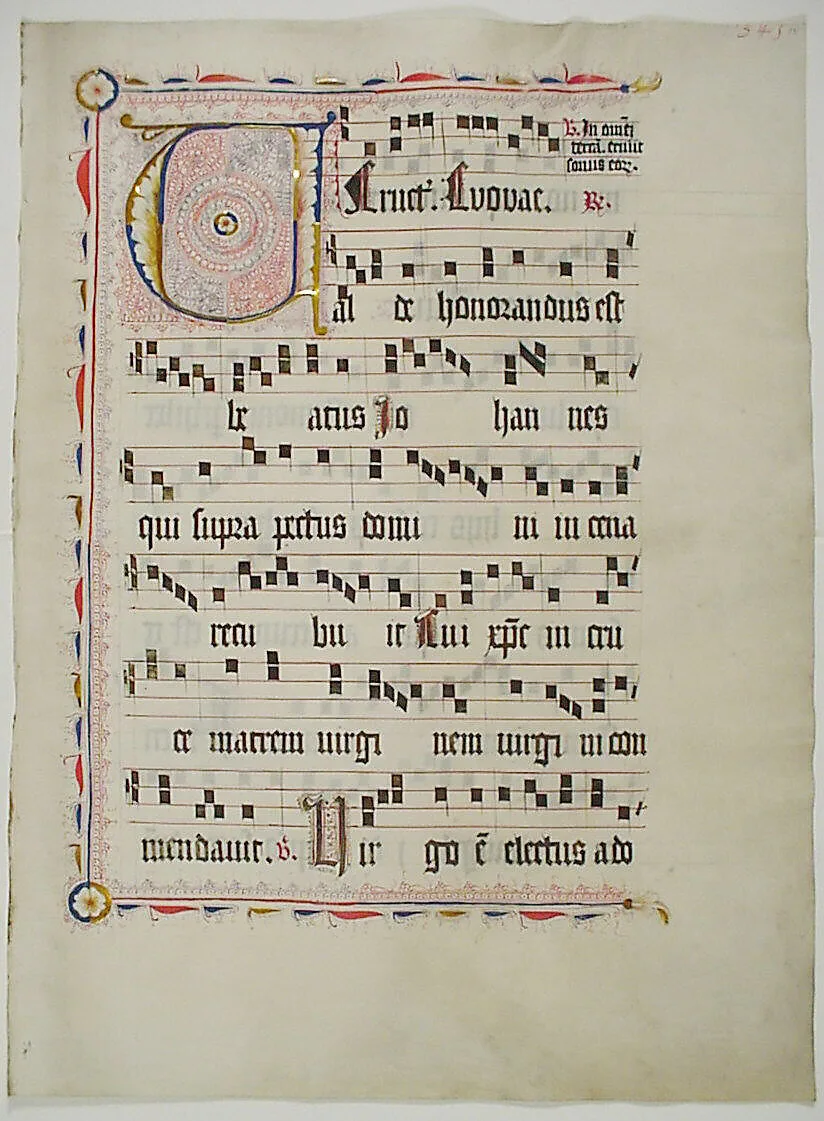 Eruct'. Euouae. R.
V. In omnē
terrā. exiuit
sonus eoꝝ.
Val de honorandus est
be atus Jo han nes
qui supra pectus domi ni in cena
recu bu it Cui xp̄c in cru
ce matrem uirgi nem uirgi ni con
mendauit. v. Uir go ē electus a do